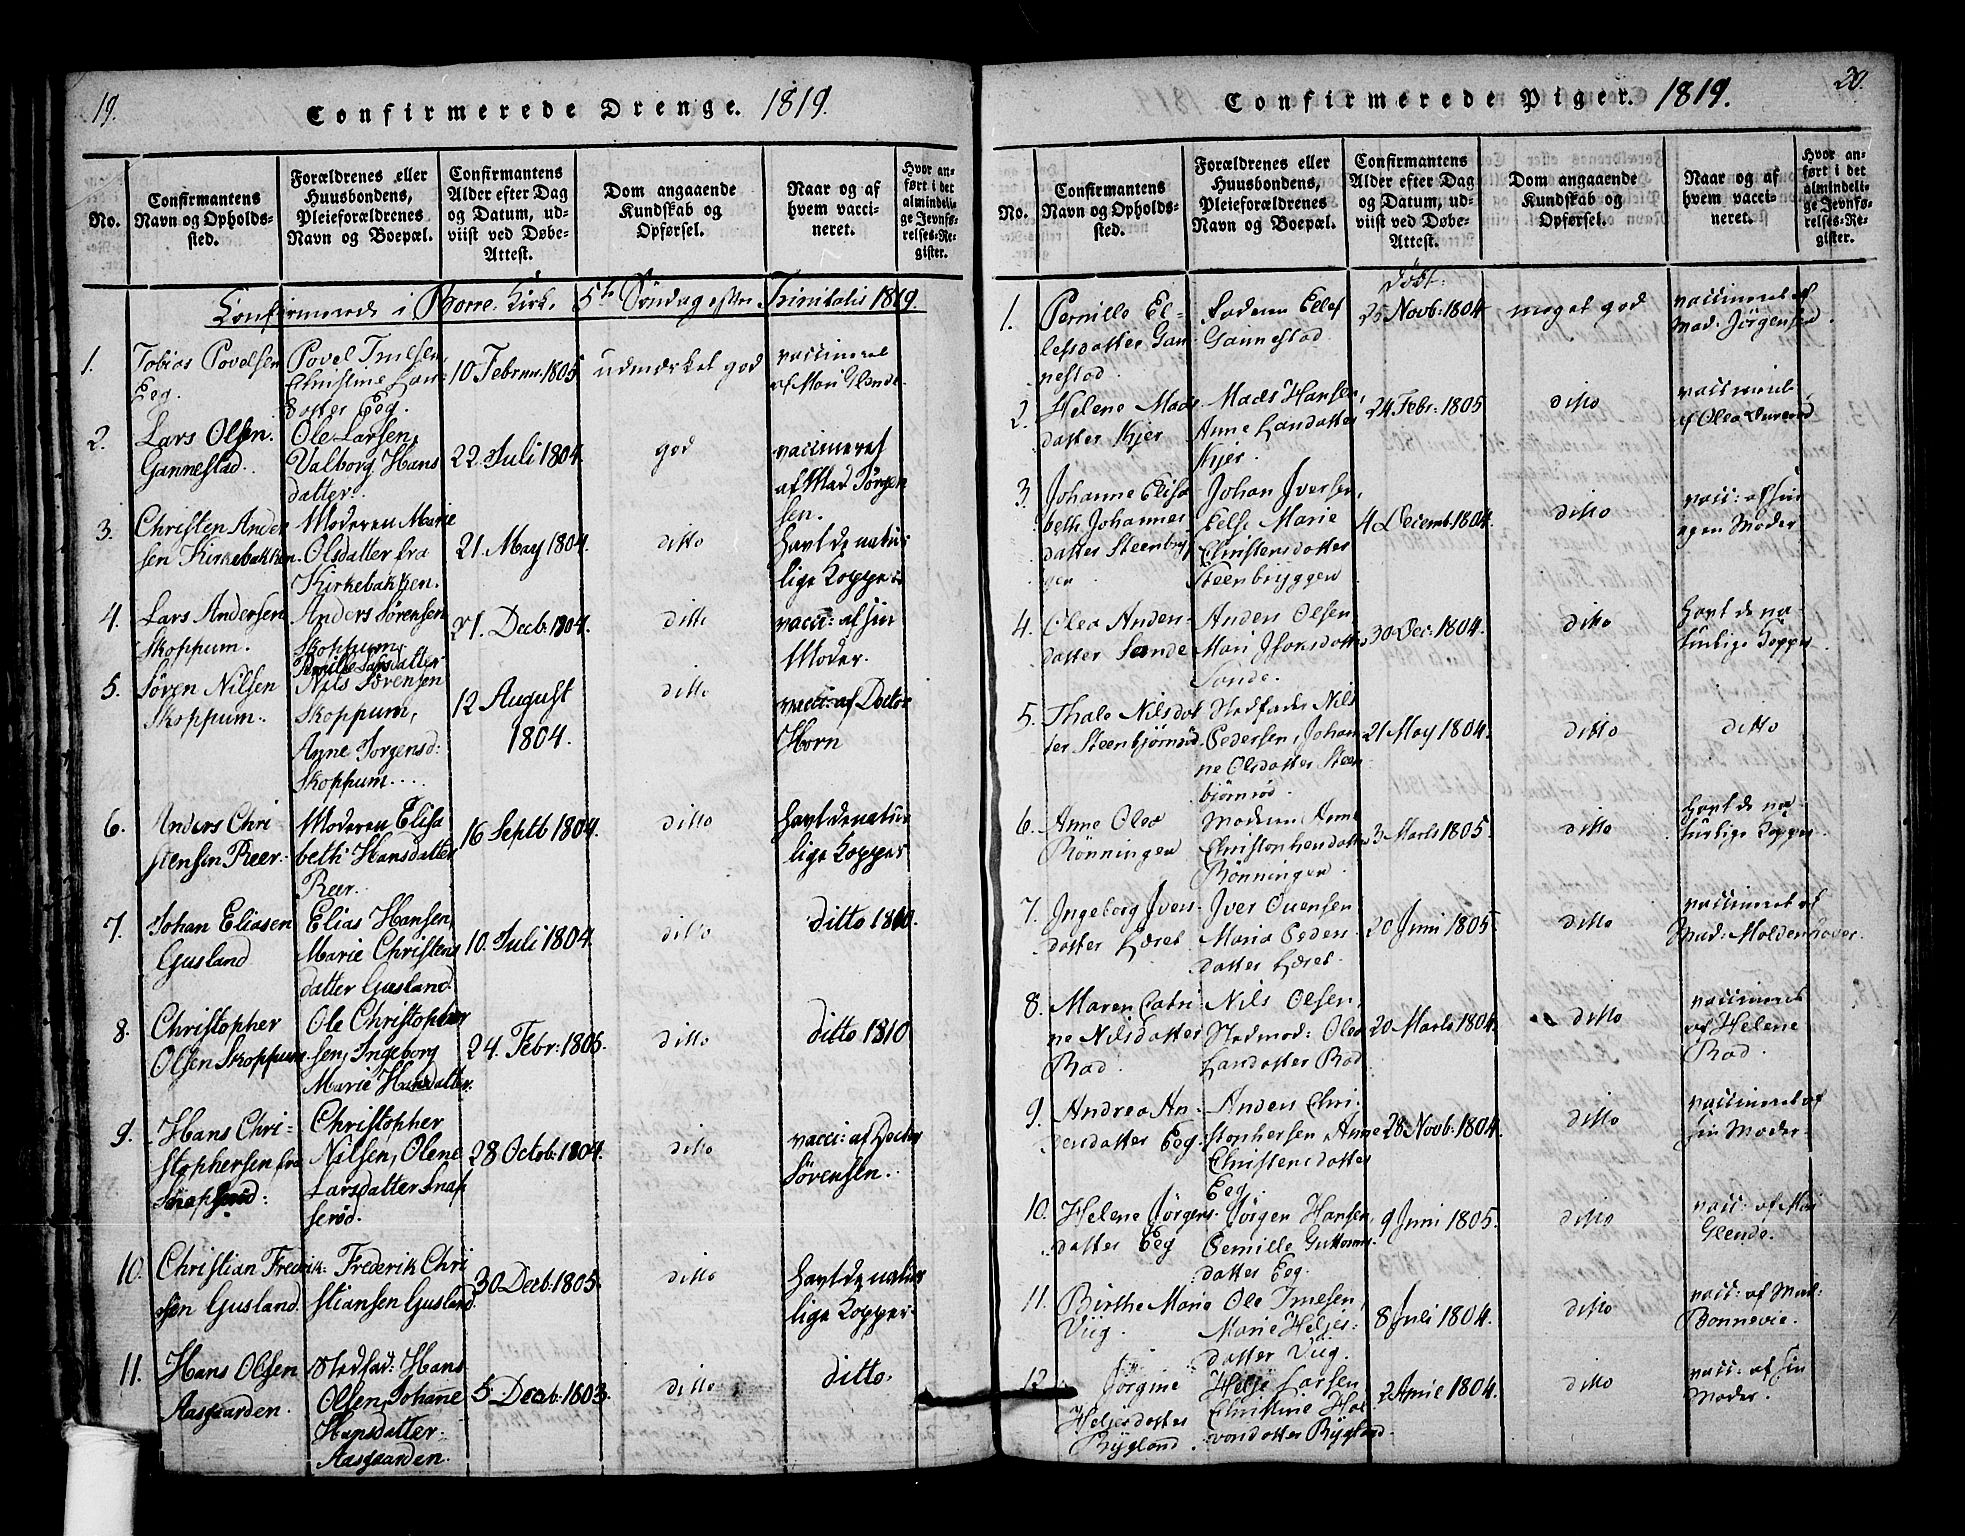 19.
Confirmerede Drenge. 1819.
No.
Confirmantens
Navn og Opholds-
sted.
Forældrenes eller
Huusbondens,
Pleieforældrenes
Navn og Boepæl.
Confirmantens
Alder efter Dag
og Datum, ud-
viist ved Døbe-
Attest.
Dom angaaende
Kundskab og
Opførsel.
Naar og af
hvem vacci-
neret.
Hvor an-
ført i det
almindeli-
ge Jevnfø-
relses-Re-
gister.
Confirmerede i Borre Kirke 5te Søndag efter Trinitatis 1819.
1.
Tobias Povelsen
Eeg.
Povel Imesen,
Christine Lars
datter Eeg.
10 Februar 1805
udmærket god
vaccineret
af Mari Glende.
2.
Lars Olsen
Gannestad.
Ole Larsen,
Valborg Hans
datter.
22. Juli 1804.
god
vaccineret
af Mad Jørgen
sen.
3.
Christen Ander
sen Kirkebakken
Moderen Marie
Olsdatter fra
Kirkebakken.
21. May 1804.
ditto
havt de natur
lige Kopper
4.
Lars Andersen
Skoppum.
Anders Sørensen
Skoppum,
21. Decb: 1804.
ditto
vacci: af sin
Moder.
5.
Søren Nilsen
Skoppum.
Nils Sørensen
Skoppum,
Anne Jørgensd:
Skoppum...
12 August
1804.
ditto
vacci: af Doctor
Horn
6.
Anders Chri
stensen Reer.
Moderen Elisa
beth Hansdatter
Reer.
16 Septb 1804.
ditto
havt de natur
lige Kopper
7.
Johan Eliasen
Gusland
Elias Hansen,
Marie Christens
datter Gusland.
10. Juli 1804.
ditto
ditto 1810.
8.
Christopher
Olsen Skoppum.
Ole Christopher
sen, Ingeborg
Marie Hansdatter.
24. Febr: 1805.
ditto
ditto 1810
9.
Hans Chri-
stophersen fra
Snapserød:
Christopher
Nilsen, Olene
Larsdatter Snap
serød.
28 Octob: 1804.
ditto
vacci: af Doctor
Sørensen.
10.
Christian Fredrik-
sen Gusland.
Frederik Chri
stiansen Gusland.
30 Decb: 1805.
ditto
havt de natur
lige Kopper.
11.
Hans Olsen
Aasgaarden.
Stedfad: Hans
Olsen, Johane
Hansdatter
Aasgaarden.
5. Decb: 1803.
ditto
ditto.
20.
Confirmerede Piger. 1819.
No.
Confirmantens
Navn og Opholds-
sted.
Forældrenes eller
Huusbondens,
Pleieforældrenes
Navn og Boepæl.
Confirmantens
Alder efter Dag
og Datum, ud-
viist ved Døbe-
Attest.
Dom angaaende
Kundskab og
Opførsel.
Naar og af
hvem vacci-
neret.
Hvor an-
ført i det
almindeli-
ge Jevnfø-
relses-Re-
gister.
1.
Pernille El-
lefsdatter Gan
nestad
Faderen Ellef
Gannestad.
født:
25 Novb: 1804
meget god
vaccineret af
Mad. Jørgensen.
2.
Helene Mads
datter Kjer
Mads Hansen,
Anne Larsdatter
Kjer.
24 Febr: 1805
ditto
vaccineret
af Olea
3.
Johanne Elisa
beth Johannes
datter Steenbryg
gen
Johan Iversen,
Eelse Marie
Christensdatter
Steenbryggen
4 Decemb. 1804.
ditto
vacc: af sin
egen Moder
4.
Olea Anders-
datter Sande
Anders Olsen
Mari Isaksdatter
Sande.
30 Dec: 1804.
ditto
havt de na-
turlige Kopper
5.
Thale Nilsdat
ter Steenbjørnrød
Stedfader Nils
Pedersen, Johan
ne Olsdatter Steen
bjørnrød.
21 May 1804.
ditto
ditto
6.
Anne Olea
Rønningen
Moderen Anne
Christophersdatter
Rønningen.
3 Marts 1805.
ditto
havt de na
turlige Kopper.
7.
Ingeborg Ivers
datter
Iver Evensen
Maria Peders
datter
20 Juni 1805.
ditto
vaccineret af
Mad: Moldenhaver.
8.
Maren Catri
ne Nilsdatter
Rød.
Nils Olsen,
Stedmod: Olea
Larsdatter Rød
20 Marts 1804.
ditto
vaccineret
af Helene
Rød.
9.
Andrea An-
dersdatter Eeg
Anders Chri-
stophersen Anne
Christensdatter
Eeg.
28 Novb: 1804.
ditto
vaccineret af
sin Moder
10.
Helene Jørgens
datter Eeg
Jørgen Hansen,
Pernille Guttorms
datter Eeg.
9 Juni 1805.
ditto
vacc: af Mari
Glende.
11.
Birthe Marie
Viig.
Ole Imesen,
Marie Heljes-
datter Viig.
8 Juli 1804.
ditto
vacc: af Mad:
Bonnevie.
12
Jørgine
Heljesdatter
Rygland.
Helje Larsen
Christine Hal
vorsdatter Rygland.
2 April 1804.
ditto
vacc: af sin
Moder.